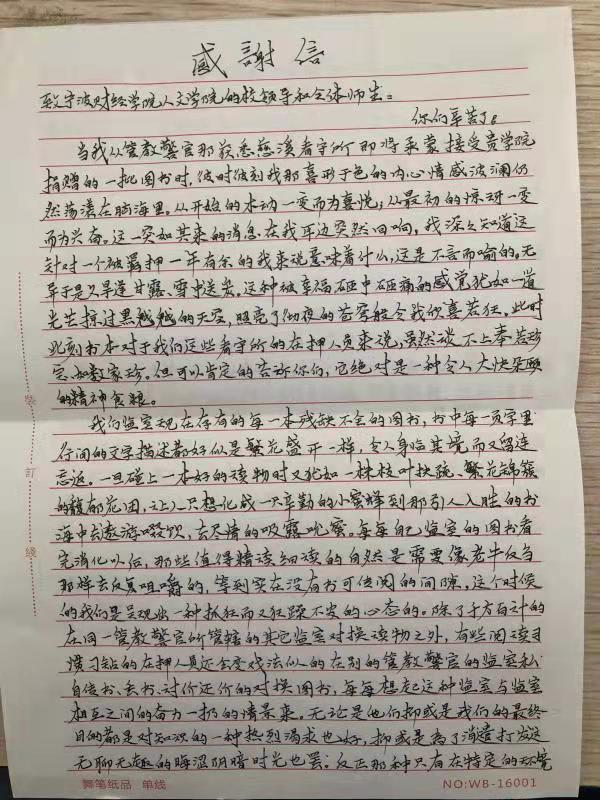 感謝信
致宁波财经学院人文学院的校领导和全体师生：
你们辛苦了！
当我从管教警官那获悉慈溪看守所即将承蒙接受贵学院
捐赠的一批图书时，彼时彼刻我那喜形于色的内心情感波澜仍
然荡漾在脑海里。从开始的木动一变而为喜悦；从最初的惊讶一变
而为兴奋。这一突如其来的消息在我耳边突然回响，我深深知道这
针对一个被羁押一年有余的我来说意味着什么，这是不言而喻的。无
异于是久旱逢甘露、雪中送炭。这种被幸福砸中砸痛的感觉犹如一道
光芒掠过黑越越的天空，照亮了彻夜的苍穹般令我欣喜若狂。此时
此刻书本对于我们这些看守所的在押人员来说，虽然谈不上奉若珍
宝、如数家珍。但可以肯定的告诉你们，它绝对是一种令人大快朵颐
的精神食粮。
我们监室现在存有的每一本残缺不全的图书，书中每一页字里
行间的文字描述都好似是繁花盛开一样，令人身临其境而又留连
忘返。一旦碰上一本好的读物时又犹如一株枝叶扶疏、繁花锦簇
的馥郁花园，让人只想化成一只辛勤的小蜜蜂到那引人入胜的书
海中去遨游啜饮，去尽情的吸露吮蜜，每每自己监室的图书看
完消化以后，那些值得精读细读的自然是需要像老牛反刍
那样去反复咀嚼的，等到实在没有书可传阅的间隙，这个时候
的我们是呈现出一种抓狂而又狂躁不安的心态的。除了千方百计的
在同一管教警官所管辖的其它监室对换读物之外，有些阅读习
惯刁钻的在押人员还会变戏法似的在别的管教警官的监室私
自传书、丢书、讨价还价的对换图书，每每想起这种监室与监室
相互之间的奋力一扔的情景来。无论是他们抑或是我们的最终
目的都是对知识的一种热烈渴求也好，抑或是为了消遣打发这
无聊无趣的晦涩阴暗时光也罢。反正那种只有在特定的环境
装
订
线
舞笔纸品 单线
NO:WB-16001